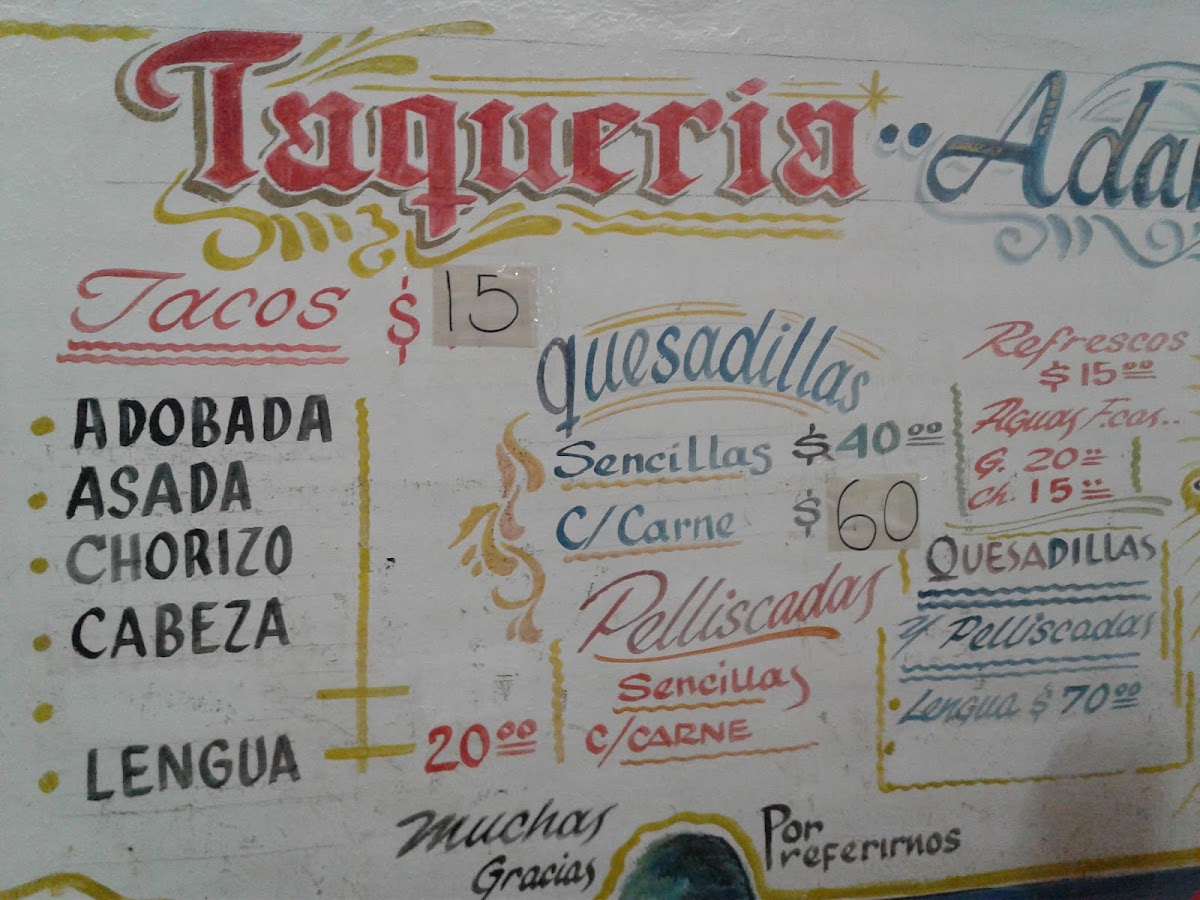 Taqueria
Tacos $ 15
• ADOBADA
• ASADA
• CHORIZO
• CABEZA
•
• LENGUA 20.00
Quesadillas
Sencillas $ 40.00
C/Carne $ 60
Pelliscadas
Sencillas
C/CARNE
Refrescos
$ 15.00
Aguas F.cas..
G. 20.=
Ch. 15.=
QUESADILLAS
y Pelliscadas
• Lengua $ 70.00
•
Muchas
Gracias
Por
referirnos